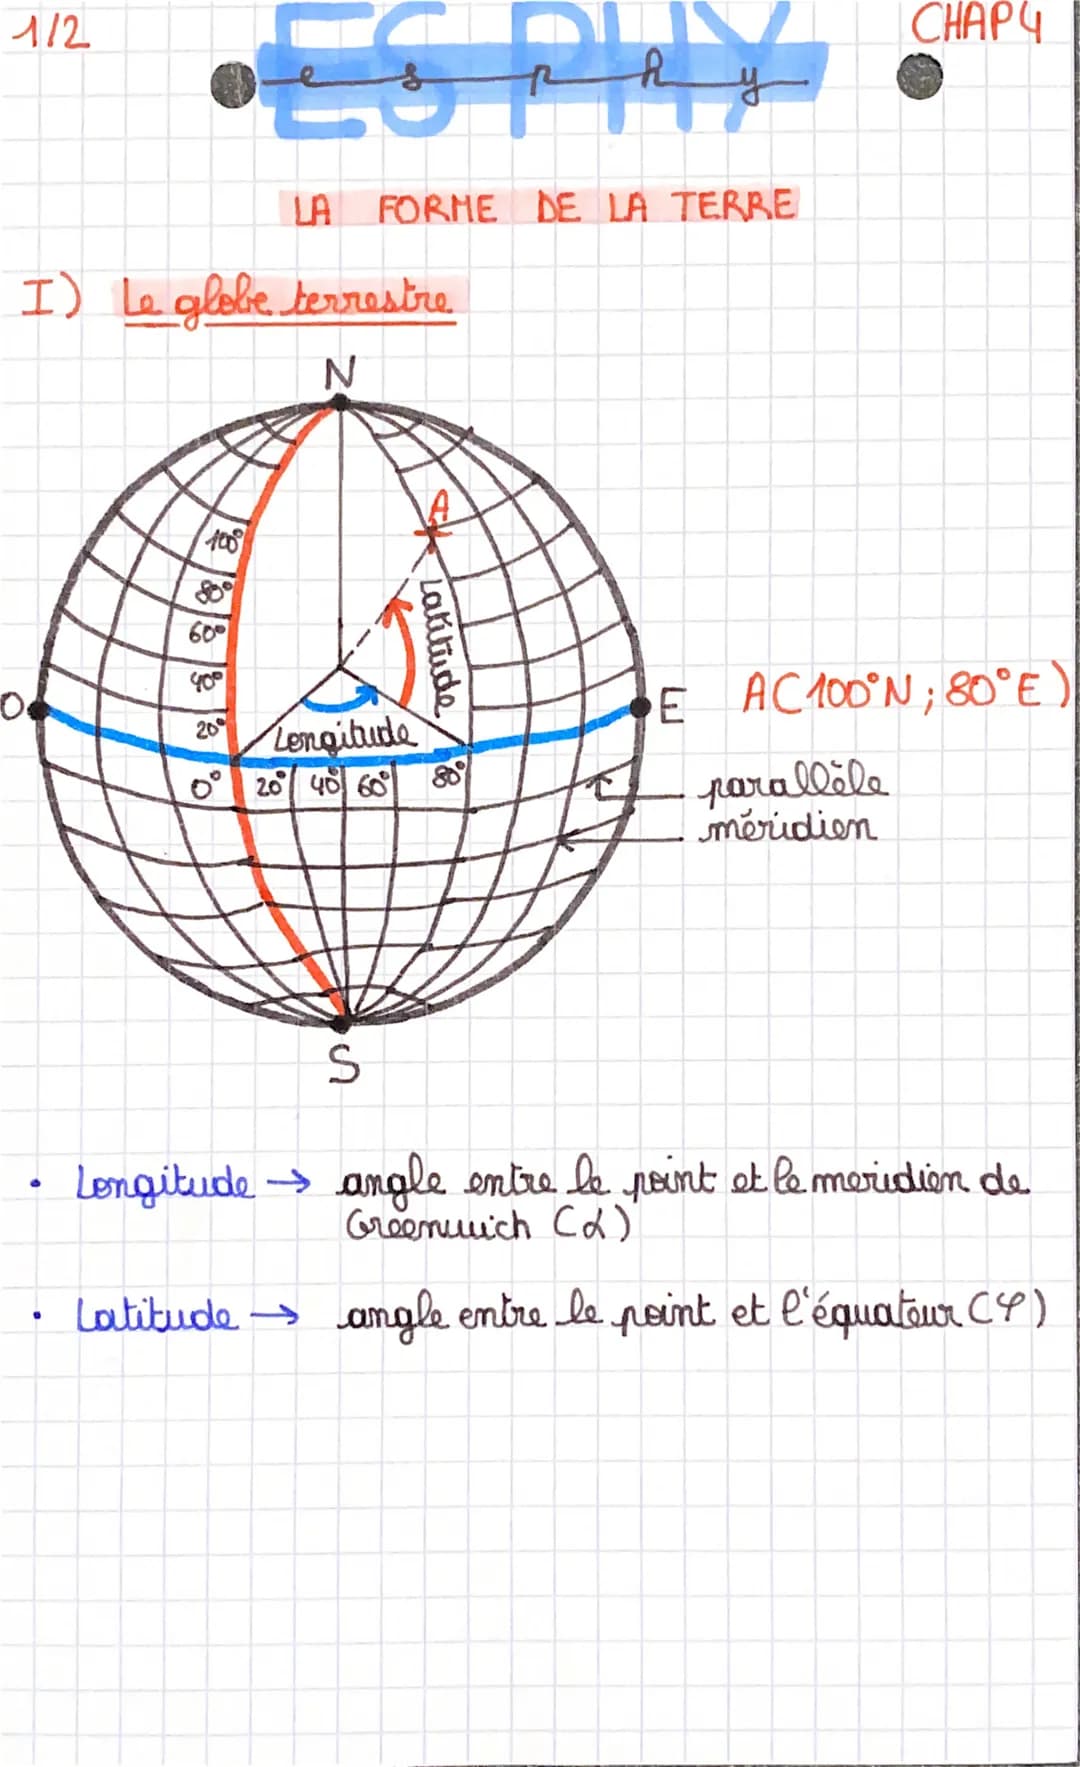 1/2
ES PHY
CHAP 4
e s p h y
LA FORME DE LA TERRE
I) Le globe terrestre
N
A
100°
80°
60°
40°
20°
0°
Latitude
Longitude
O
E
A(100°N ; 80°E)
20° 40° 60° 80°
parallèle
méridien
S
• Longitude → angle entre le point et le meridien de
Greenwich (α)
• Latitude → angle entre le point et l'équateur (φ)